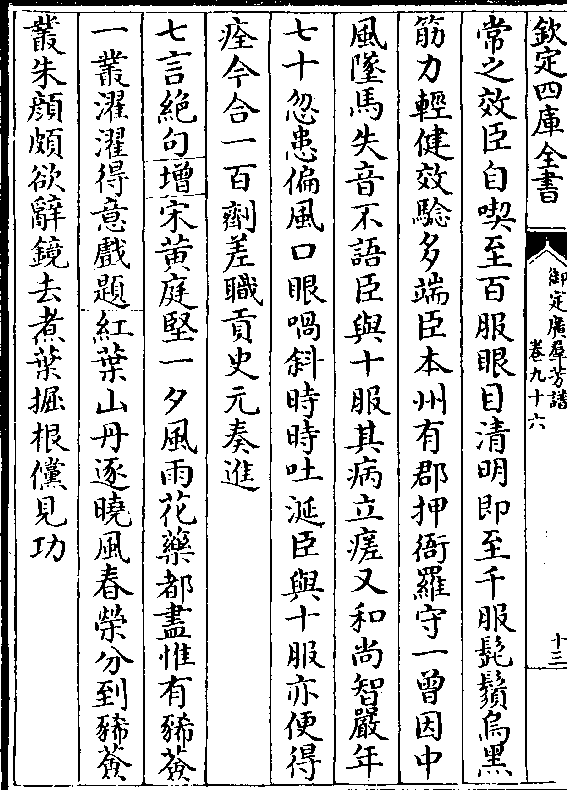 欽定四庫全書
御定廣羣芳譜
卷九十六
十三
常之效臣自喫至百服眼目清明即至千服髭鬚烏黑
筋力輕健效驗多端臣本州有郡押衙羅守一曾因中
風墜馬失音不語臣與十服其病立瘥又和尚智嚴年
七十忽患偏風口眼喎斜時時吐涎臣與十服亦便得
痊今合一百劑差職貢史元奏進
七言絶句增宋黄庭堅一夕風雨花藥都盡惟有豨薟
一叢濯濯得意戲題紅葉山丹逐曉風春榮分到豨薟
叢朱顔頗欲辭鏡去煮葉掘根儻見功